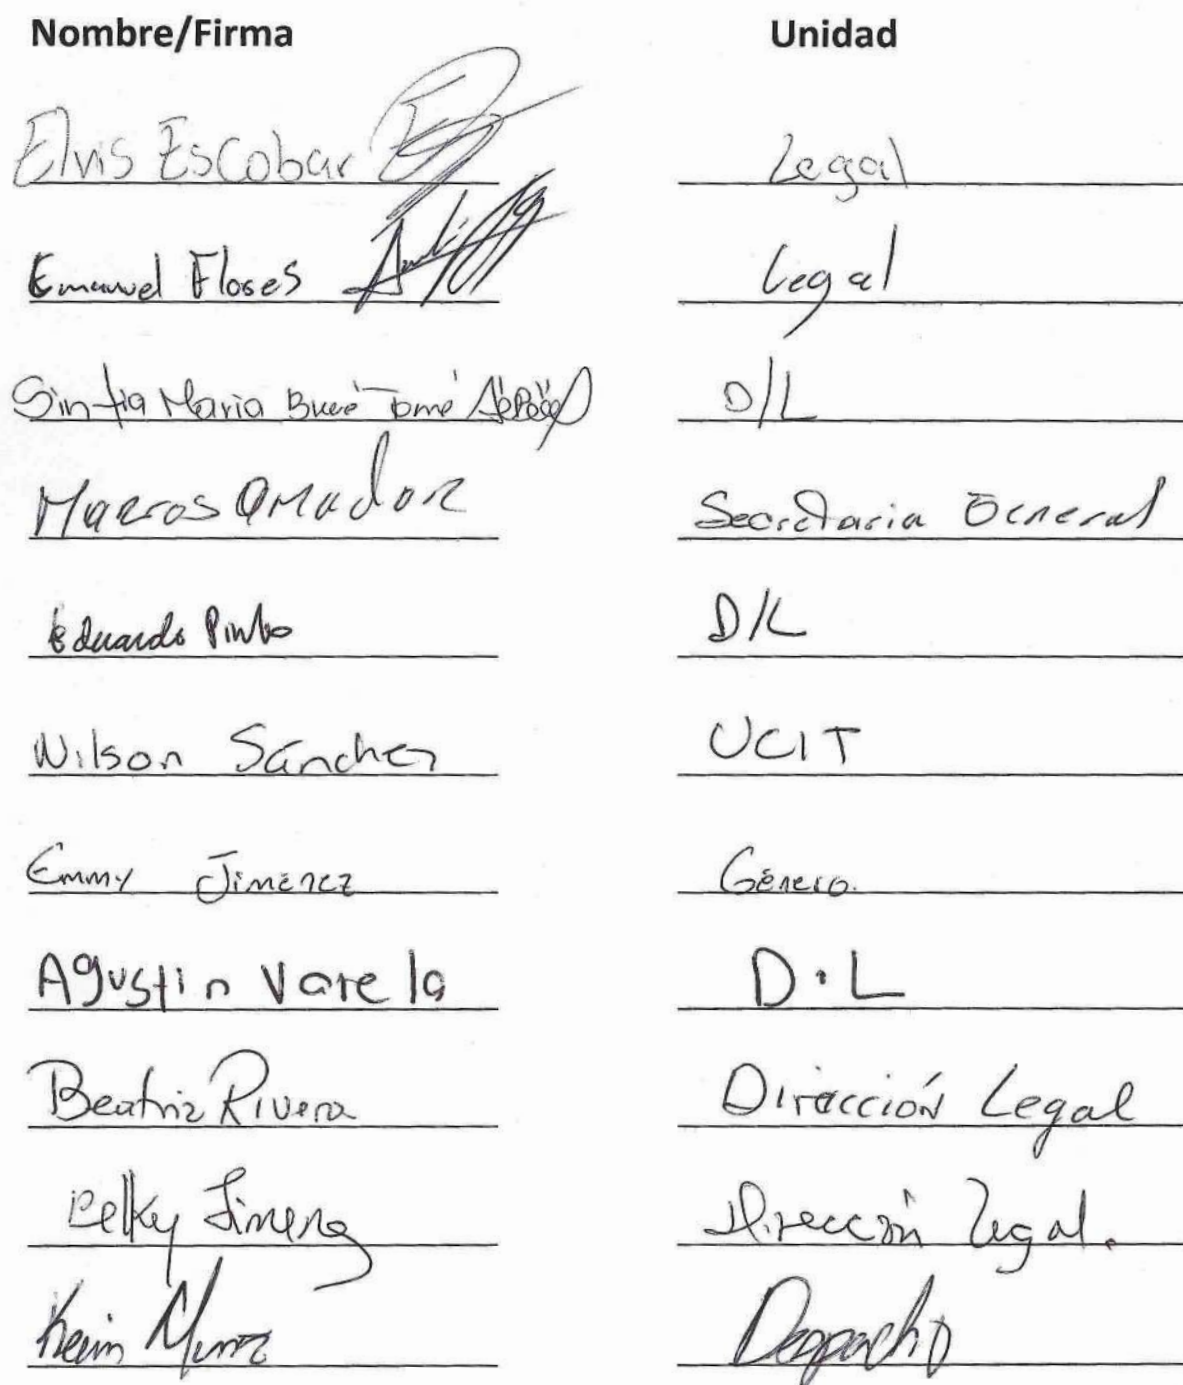 Nombre/Firma Unidad
Elvis Escobar Legal
Emanuel Flores Legal
Sintia Maria Bueso Tomé D/L
Marcos Amador Secretaria General
Eduardo Pinto D/L
Wilson Sánchez UCIT
Emmy Jiménez Género.
Agustin Varela D.L
Beatriz Rivera Dirección Legal
Belky Jimenez Dirección Legal.
Kevin Despacho